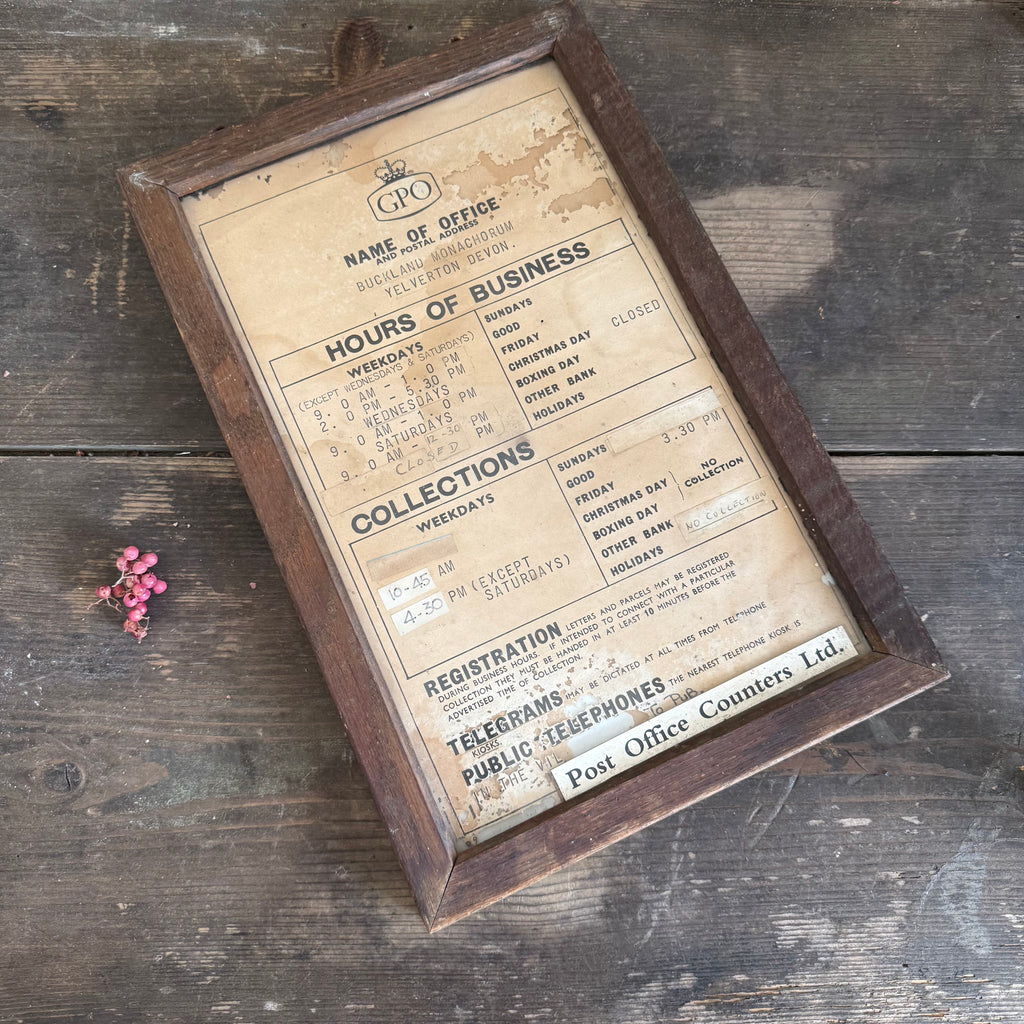 GPO
NAME OF OFFICE
AND POSTAL ADDRESS
BUCKLAND MONACHORUM
YELVERTON DEVON.
HOURS OF BUSINESS
WEEKDAYS
(EXCEPT WEDNESDAYS & SATURDAYS)
9. 0 AM - 1. 0 PM
2. 0 PM - 5.30 PM
WEDNESDAYS
9. 0 AM - 1.0 PM
SATURDAYS
9. 0 AM - 12-30 PM
CLOSED PM
SUNDAYS
GOOD
FRIDAY
CHRISTMAS DAY
BOXING DAY
OTHER BANK
HOLIDAYS
CLOSED
COLLECTIONS
WEEKDAYS
10-45 AM
4-30 PM (EXCEPT
SATURDAYS)
SUNDAYS 3.30 PM
GOOD
FRIDAY
CHRISTMAS DAY
BOXING DAY
OTHER BANK
HOLIDAYS
NO
COLLECTION
NO COLLECTION
REGISTRATION LETTERS AND PARCELS MAY BE REGISTERED
DURING BUSINESS HOURS. IF INTENDED TO CONNECT WITH A PARTICULAR
COLLECTION THEY MUST BE HANDED IN AT LEAST 10 MINUTES BEFORE THE
ADVERTISED TIME OF COLLECTION.
TELEGRAMS MAY BE DICTATED AT ALL TIMES FROM TELEPHONE
KIOSKS.
PUBLIC TELEPHONES THE NEAREST TELEPHONE KIOSK IS
IN THE VIL TO PUB
Post Office Counters Ltd.